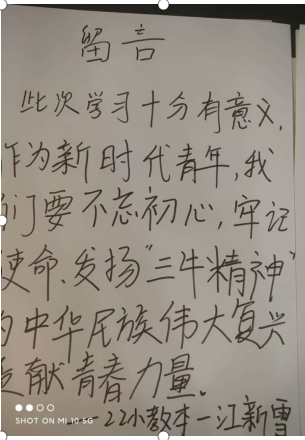 留言
此次学习十分有意义,
作为新时代青年,我
们要不忘初心,牢记
使命、发扬“三牛精神”
为中华民族伟大复兴
贡献青春力量。
——22小教本一江新雪
SHOT ON MI 10 5G